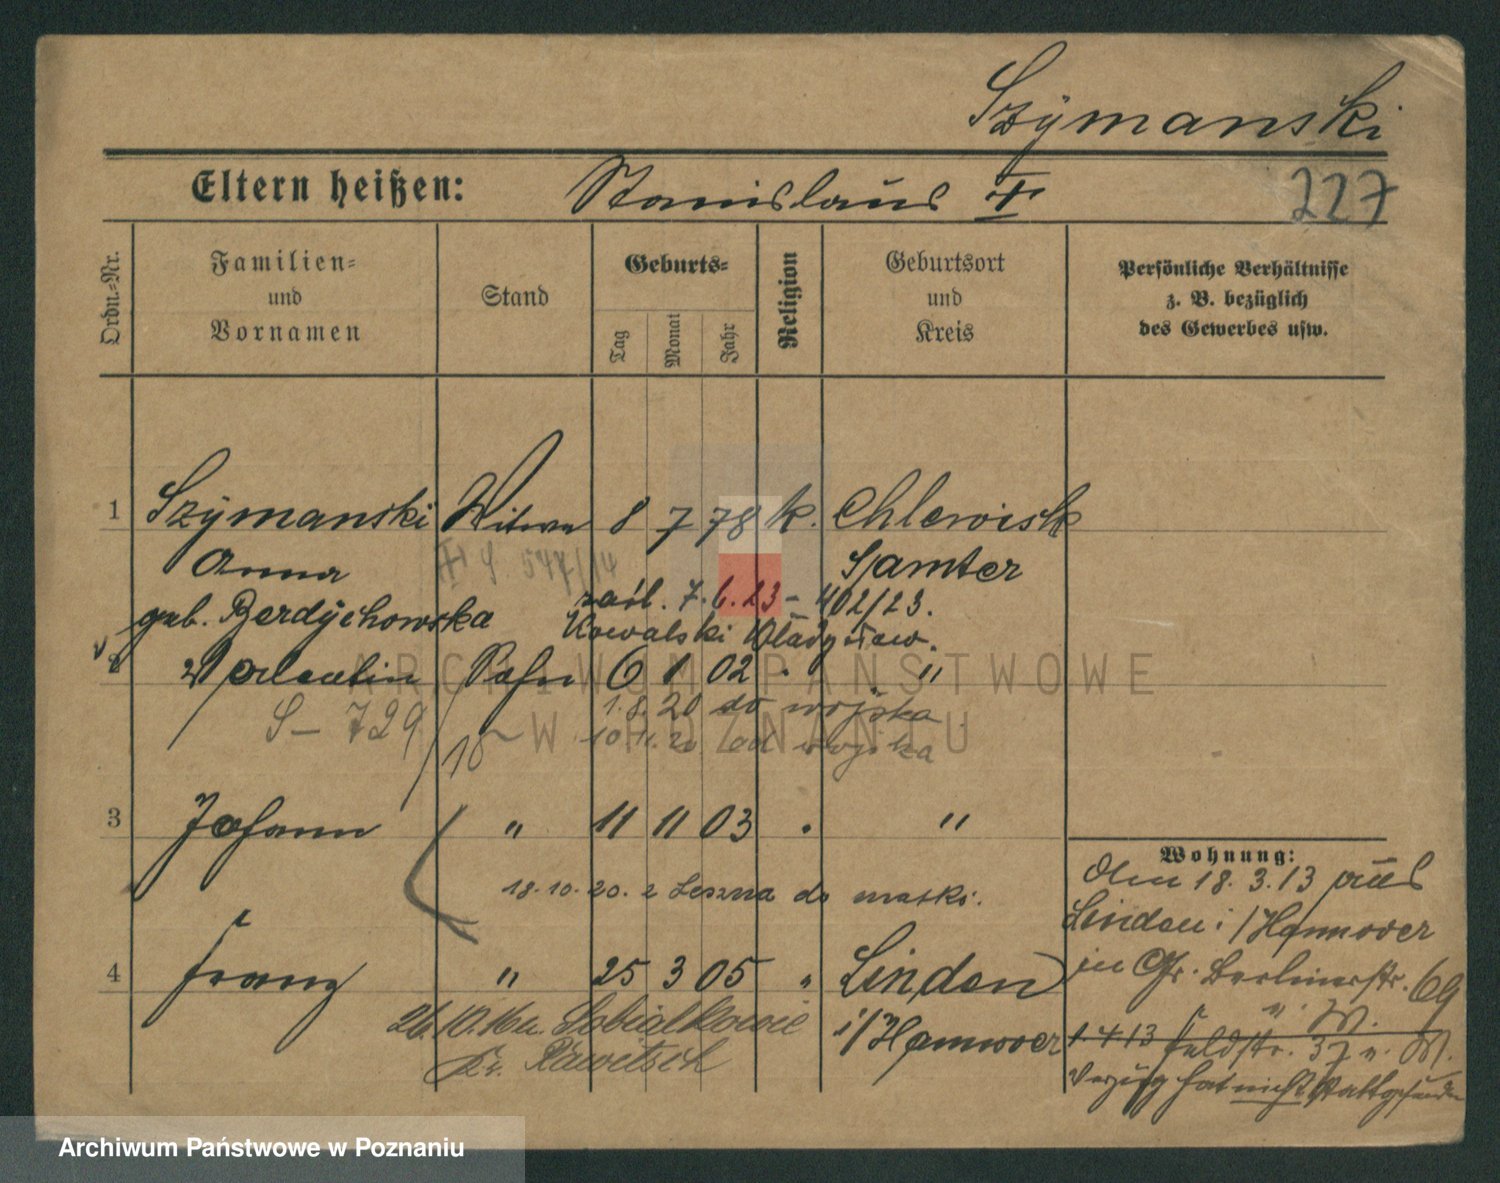 Szymanski
Eltern heißen: Stanislaus
227
Ordn.-Nr.
Familien-
und
Vornamen
Stand
Geburts-
Tag
Monat
Jahr
Religion
Geburtsort
und
Kreis
Persönliche Verhältnisse
z. B. bezüglich
des Gewerbes usw.
1 Szymanski Witwe 8 7 78 k. Chlewisk
Anna Samter
S. 547/14
geb. Berdychowska
zaśl. 7.6.23 - 402/23.
Kowalski Władysław.
2 Valentin Sohn 6 1 02 "
1.8.20 do wojska
S - 729/18
10.11.20 od wojska
3 Johann " 11 11 03 "
18.10.20. z Leszna do matki.
4 Franz " 25 3 05 " Linden
i/Hannover
26.10.16 n. Sobialkowie
Kr. Rawitsch
Wohnung:
18.3.13 aus
Linden i/Hannover
in Gr. Berlinerstr. 69
1 4 13 Feldstr. 37 n. W.
Verzug hat nicht stattgefunden
ARCHIWUM PAŃSTWOWE
W POZNANIU
Archiwum Państwowe w Poznaniu